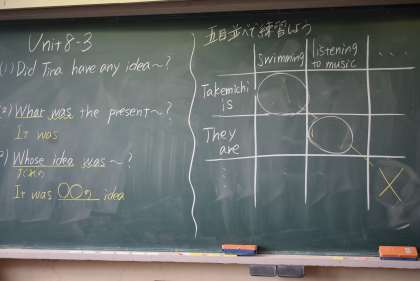 Unit 8-3
(1) Did Tina have any idea〜?
(2) What was the present〜?
It was
3) Whose idea was〜?
だれの
It was 〇〇's idea
五目並べで練習しよう
swimming
listening
to music
....
Takemichi
is
They
are
⋮